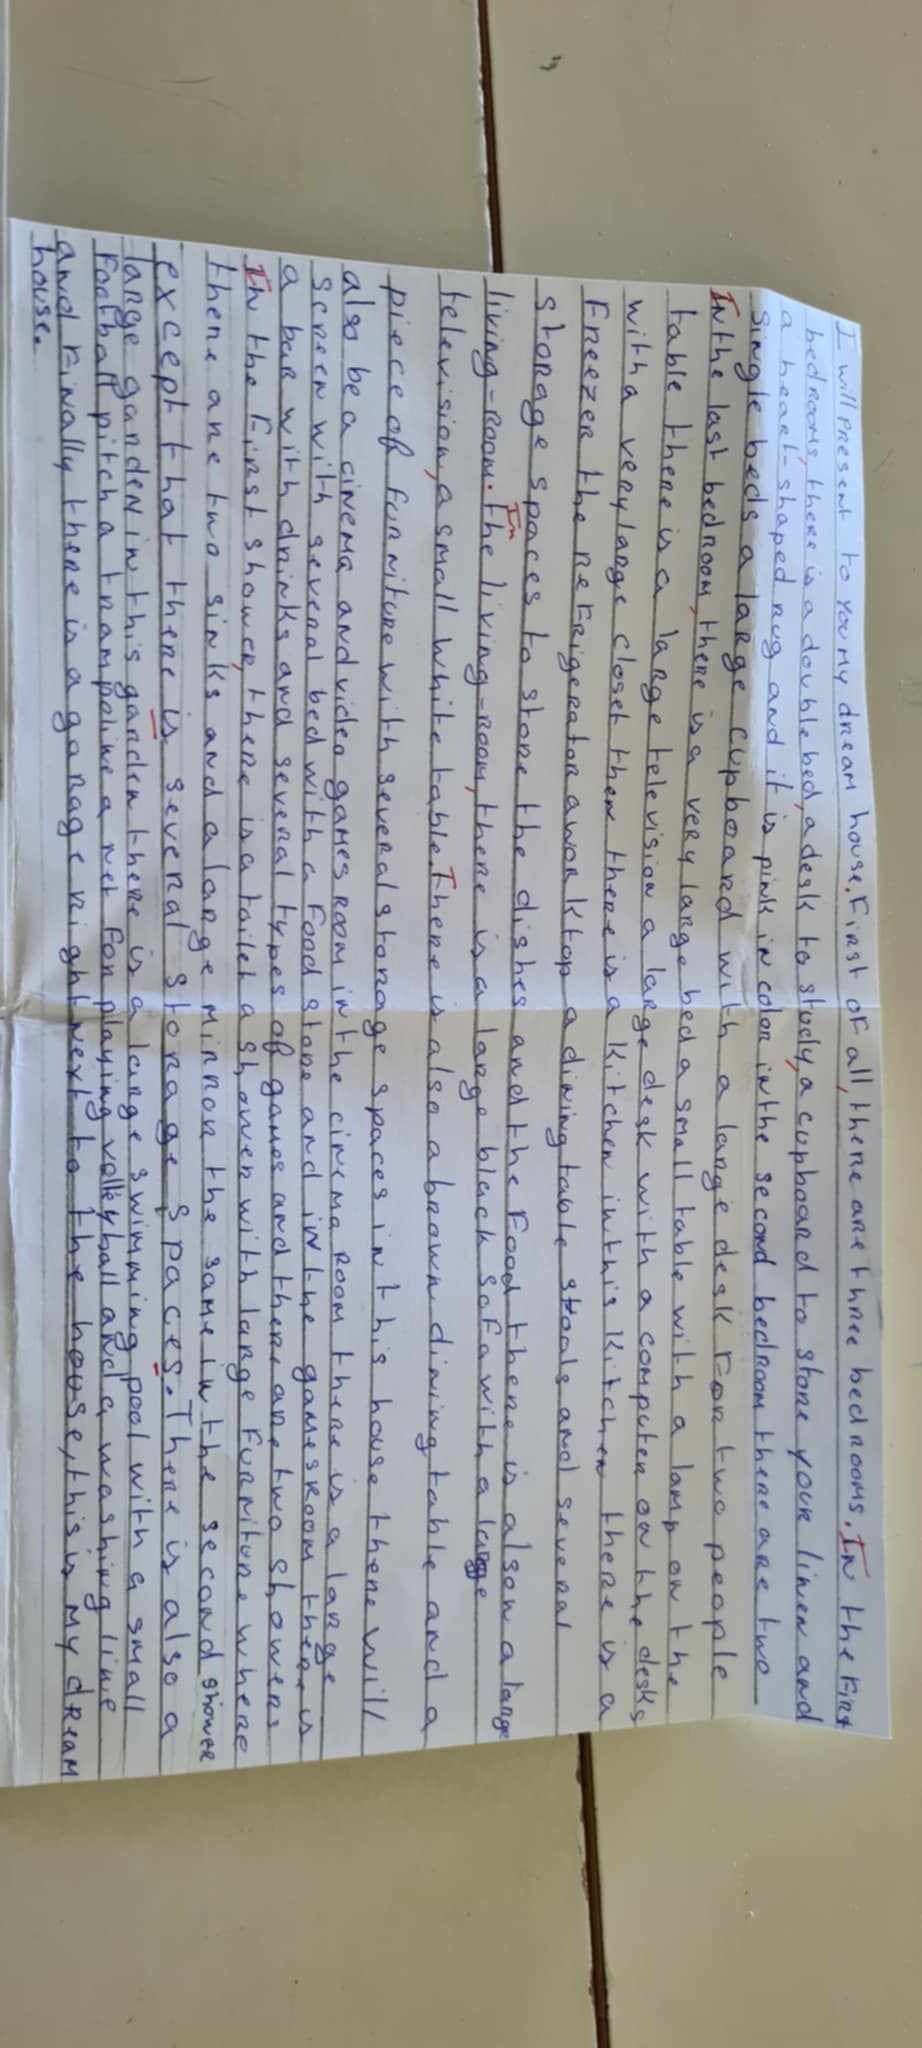 I will present to you my dream house. First of all, there are three bedrooms. In the first
bedrooms, there is a double bed, a desk to study, a cupboard to store your linen and
a heart-shaped rug and it is pink in color in the second bedroom there are two
single beds a large cupboard with a large desk for two people
In the last bedroom, there is a very large bed a small table with a lamp on the
table there is a large television a large desk with a computer on the desks
with a very large closet then there is a kitchen in this kitchen there is a
freezer the refrigerator a worktop a dining table stools and several
storage spaces to store the dishes and the food there is also a large
living-room. In the living-room, there is a large black sofa with a large
television, a small white table. There is also a brown dining table and a
piece of furniture with several storage spaces in this house there will
also be a cinema and video games room in the cinema room there is a large
screen with several bed with a food store and in the games room there is
a bar with drinks and several types of games and there are two showers
In the first shower, there is a toilet a shower with large furniture where
there are two sinks and a large mirror the same in the second shower
except that there is several storage spaces. There is also a
large garden in this garden there is a large swimming pool with a small
football pitch a trampoline a net for playing volleyball and a washing line
and finally there is a garage right next to the house, this is my dream
house.